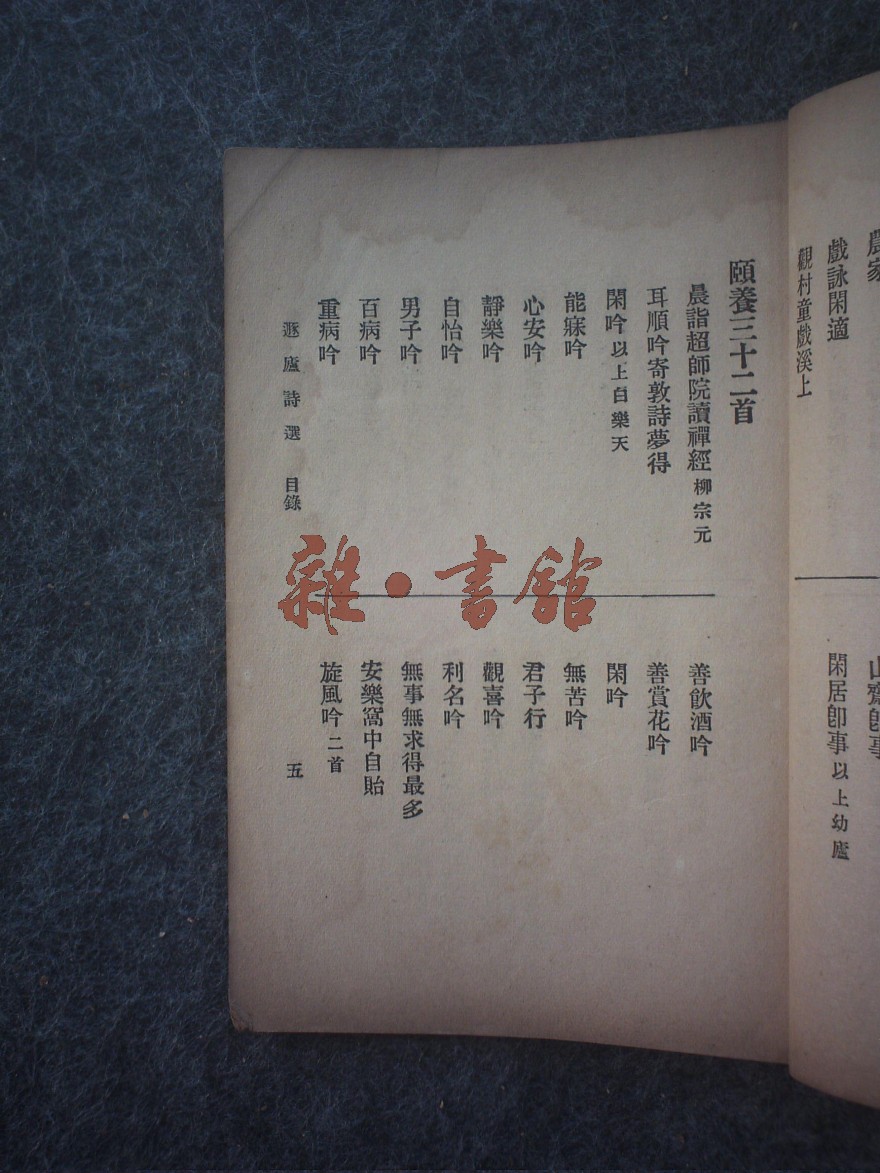 戲詠閑適
觀村童戲溪上
閑居卽事 以上幼廬
頤養三十二首
晨詣超師院讀禪經 柳宗元
耳順吟寄敦詩夢得
閑吟 以上白樂天
能寐吟
心安吟
靜樂吟
自怡吟
男子吟
百病吟
重病吟
善飮酒吟
善賞花吟
閑吟
無苦吟
君子行
觀喜吟
利名吟
無事無求得最多
安樂窩中自貽
旋風吟 二首
遯廬詩選 目錄
五
雜·書館